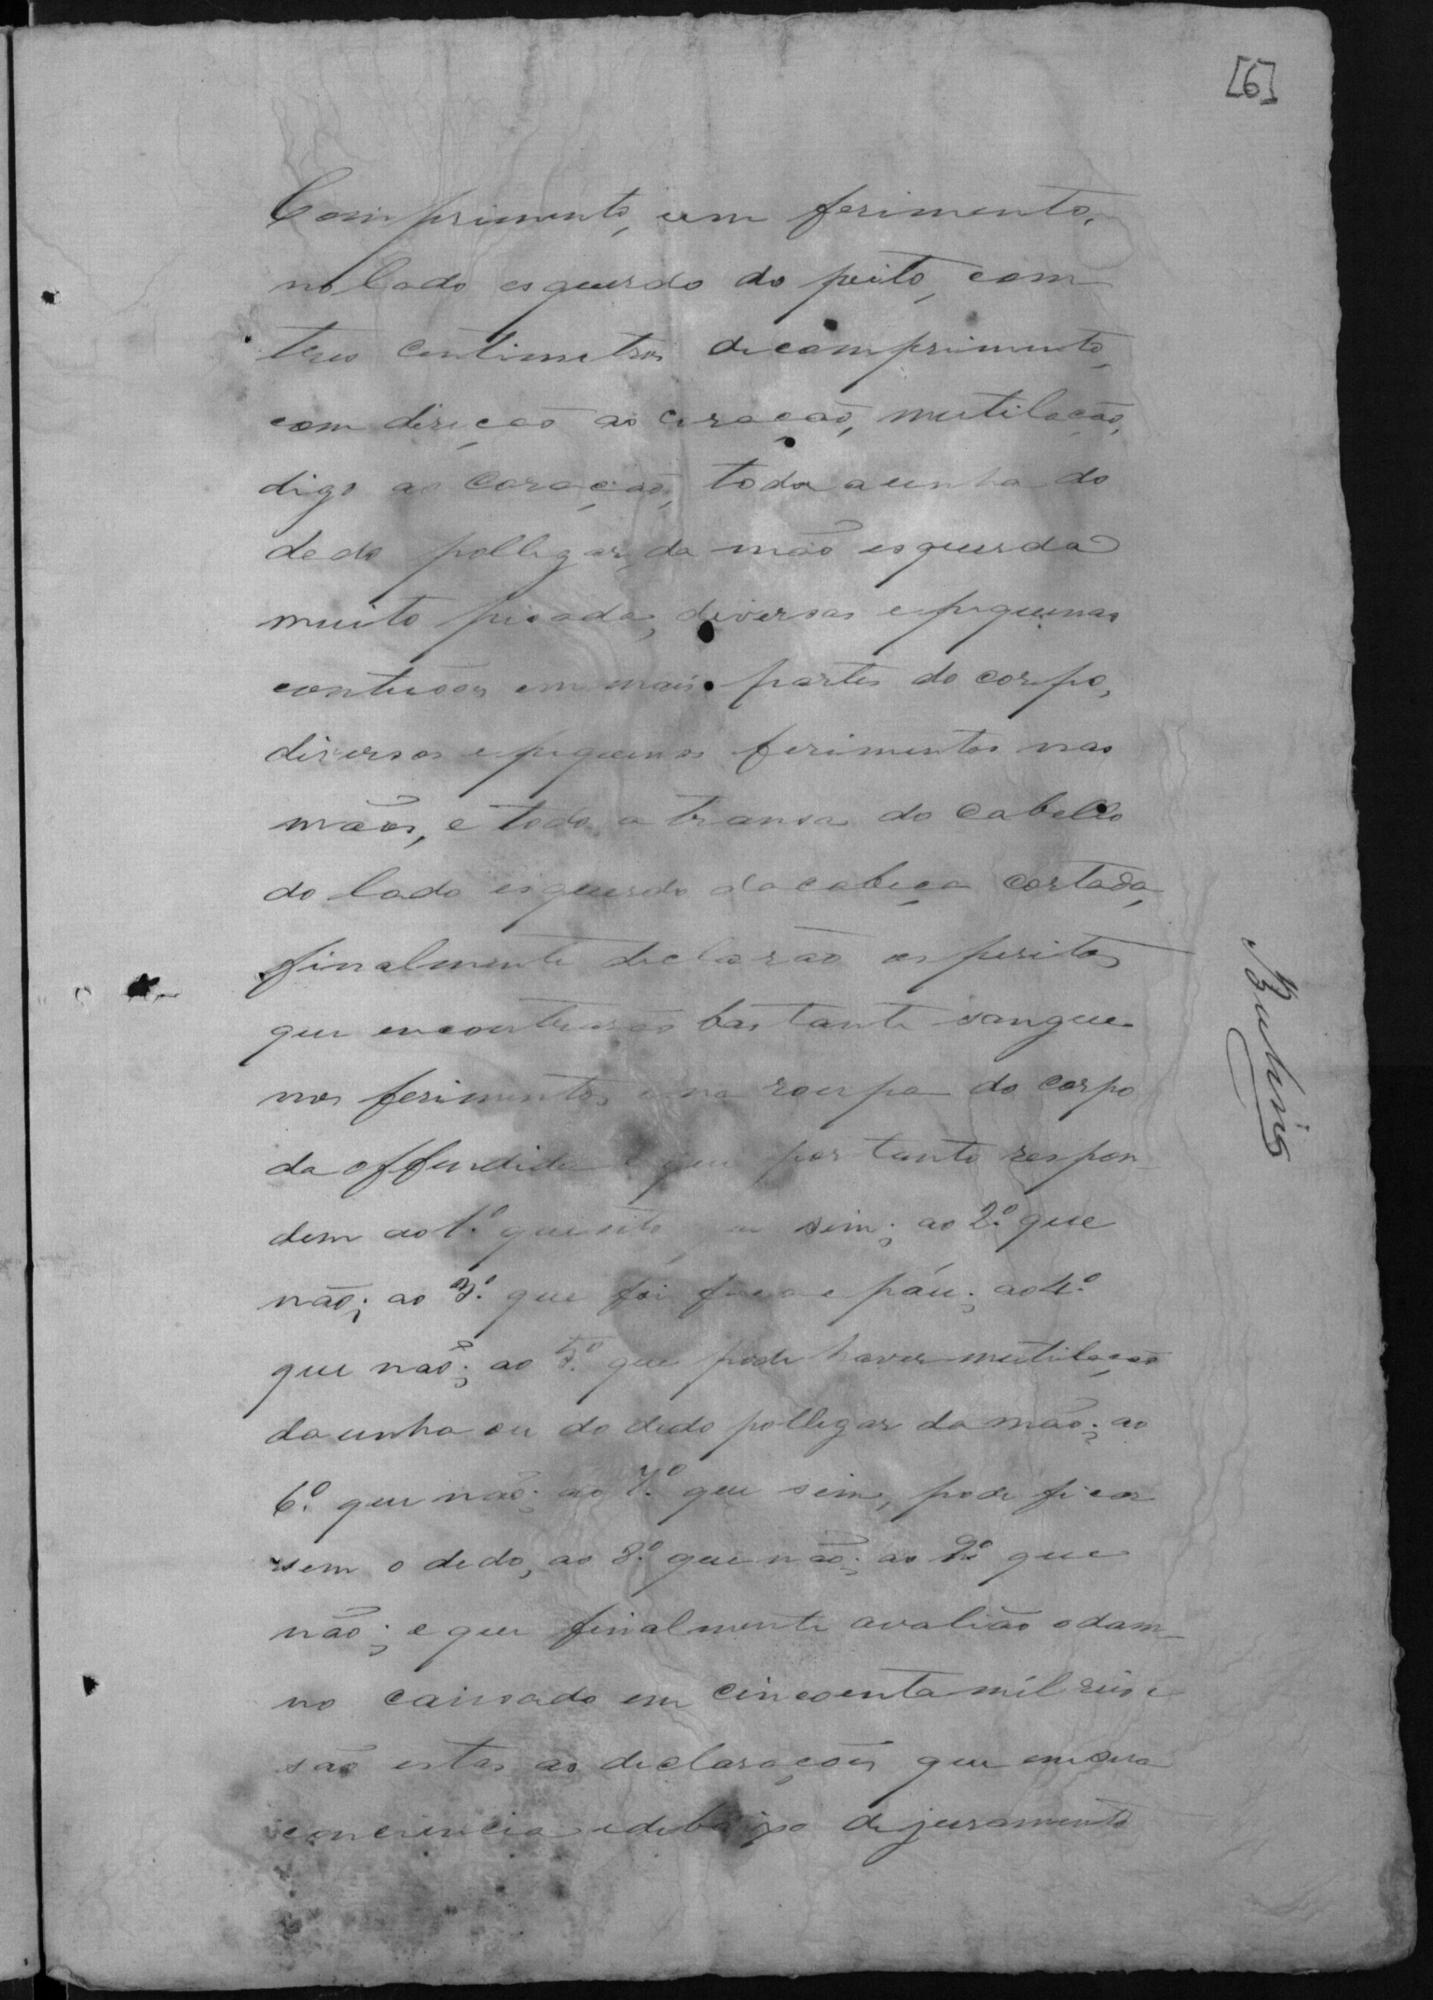 [6]
Comprimento, um ferimento,
no lado esquerdo do peito, com
tres centimetros de comprimento,
com direcão ao coração, mutilação,
digo ao coração, toda a unha do
dedo pollegar da mão esquerda
muito pisada, diversas e pequenas
contusões em mais partes do corpo,
diversos e pequenos ferimentos nas
mãos, e toda a transa do cabello
do lado esquerdo da cabeça cortada,
finalmente declarão os peritos
que encontrarão bastante sangue
nos ferimentos e na roupa do corpo
da offendida e que por tanto respon-
dem ao 1º quesito que sim; ao 2º que
não; ao 3º que foi faca e páu; ao 4º
que não; ao 5º que pode haver mutilação
da unha ou do dedo pollegar da mão; ao
6º que não; ao 7º que sim, pode ficar
sem o dedo, ao 8º que não; ao 9º que
não; e que finalmente avalião o dam-
no causado em cincoenta mil reis e
são estas as declarações que em sua
conciencia e debaixo de juramento